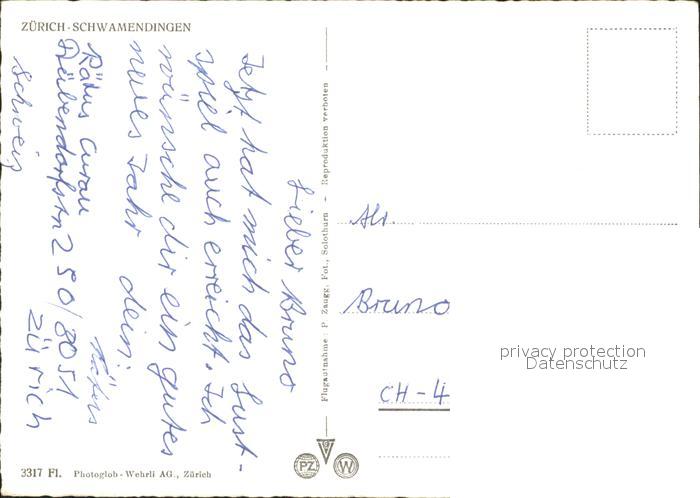 ZÜRICH-SCHWAMENDINGEN
Lieber Bruno
Jetzt hat mich das Lust-
spiel auch erreicht. Ich
wünsche dir ein gutes
neues Jahr dein:
Rätus
Rätus
Dübendorfstr 250/8051
Zürich
Schweiz
Flugaufnahme: P. Zaugg, Fot., Solothurn - Reproduktion verboten
Abs.
Bruno
CH-4
privacy protection
Datenschutz
3317 Fl. Photoglob-Wehrli AG., Zürich
PZ
W